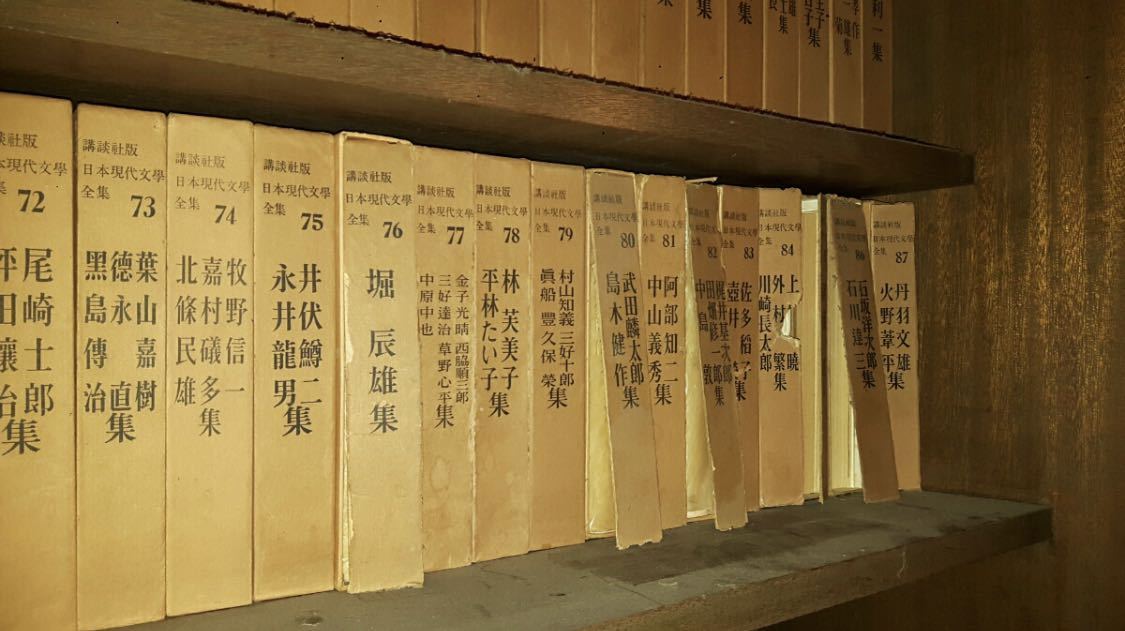 利一集
講談社版
日本現代文學
全集 72
尾崎士郎
集
講談社版
日本現代文學
全集 73
葉山嘉樹
徳永直
黒島傳治
集
講談社版
日本現代文學
全集 74
牧野信一
嘉村礒多
北條民雄
集
講談社版
日本現代文學
全集 75
井伏鱒二
永井龍男
集
講談社版
日本現代文學
全集 76
堀辰雄集
講談社版
日本現代文學
全集 77
金子光晴 西脇順三郎
三好達治 草野心平
中原中也
集
講談社版
日本現代文學
全集 78
林芙美子
平林たい子
集
講談社版
日本現代文學
全集 79
村山知義 三好十郎
眞船豊 久保榮
集
講談社版
日本現代文學
全集 80
武田麟太郎
島木健作
集
講談社版
日本現代文學
全集 81
阿部知二
中山義秀
集
82
梶井基次郎
田畑修一郎
中島敦
集
講談社版
83
佐多稲子
壺井
集
講談社版
日本現代文學
全集 84
上 暁
外村繁
川崎長太郎
集
86
石坂洋次郎
石川達三
集
講談社版
日本現代文學
全集 87
丹羽文雄
火野葦平
集